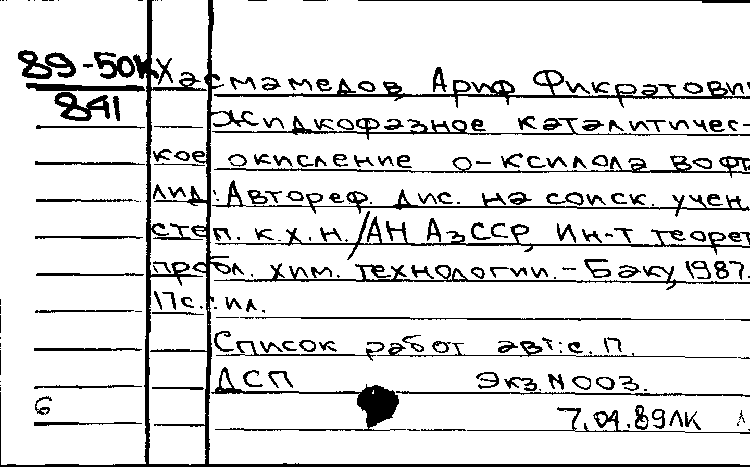 89-50К Хасмамедов, Ариф Фикратович
841
Жидкофазное каталитичес-
кое окисление о-ксилола во фта
лид: Автореф. дис. на соиск. учен.
степ. к.х.н. /АН АзССР, Ин-т теорет
пробл. хим. технологии. - Баку, 1987.
17с.: ил.
Список работ авт.: с. 17.
ДСП Экз. N 003.
6 7.04.89 ЛК